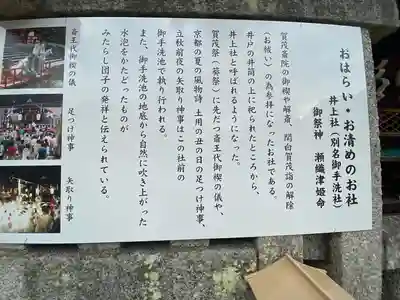 おはらい・お清めのお社
井上社（別名御手洗社）
御祭神　瀬織津姫命
賀茂斎院の御禊や解斎、関白賀茂詣の解除
（お祓い）の為参拝になったお社である。
井戸の井筒の上に祀られたところから、
井上社と呼ばれるようになった。
賀茂祭（葵祭）に先だつ斎王代御禊の儀や、
京都の夏の風物詩　土用の丑の日の足つけ神事、
立秋前夜の矢取り神事はこの社前の
御手洗池で執り行われる。
また、御手洗池の池底から自然に吹き上がった
水泡をかたどったものが
みたらし団子の発祥と伝えられている。
斎王代御禊の儀
足つけ神事
矢取り神事